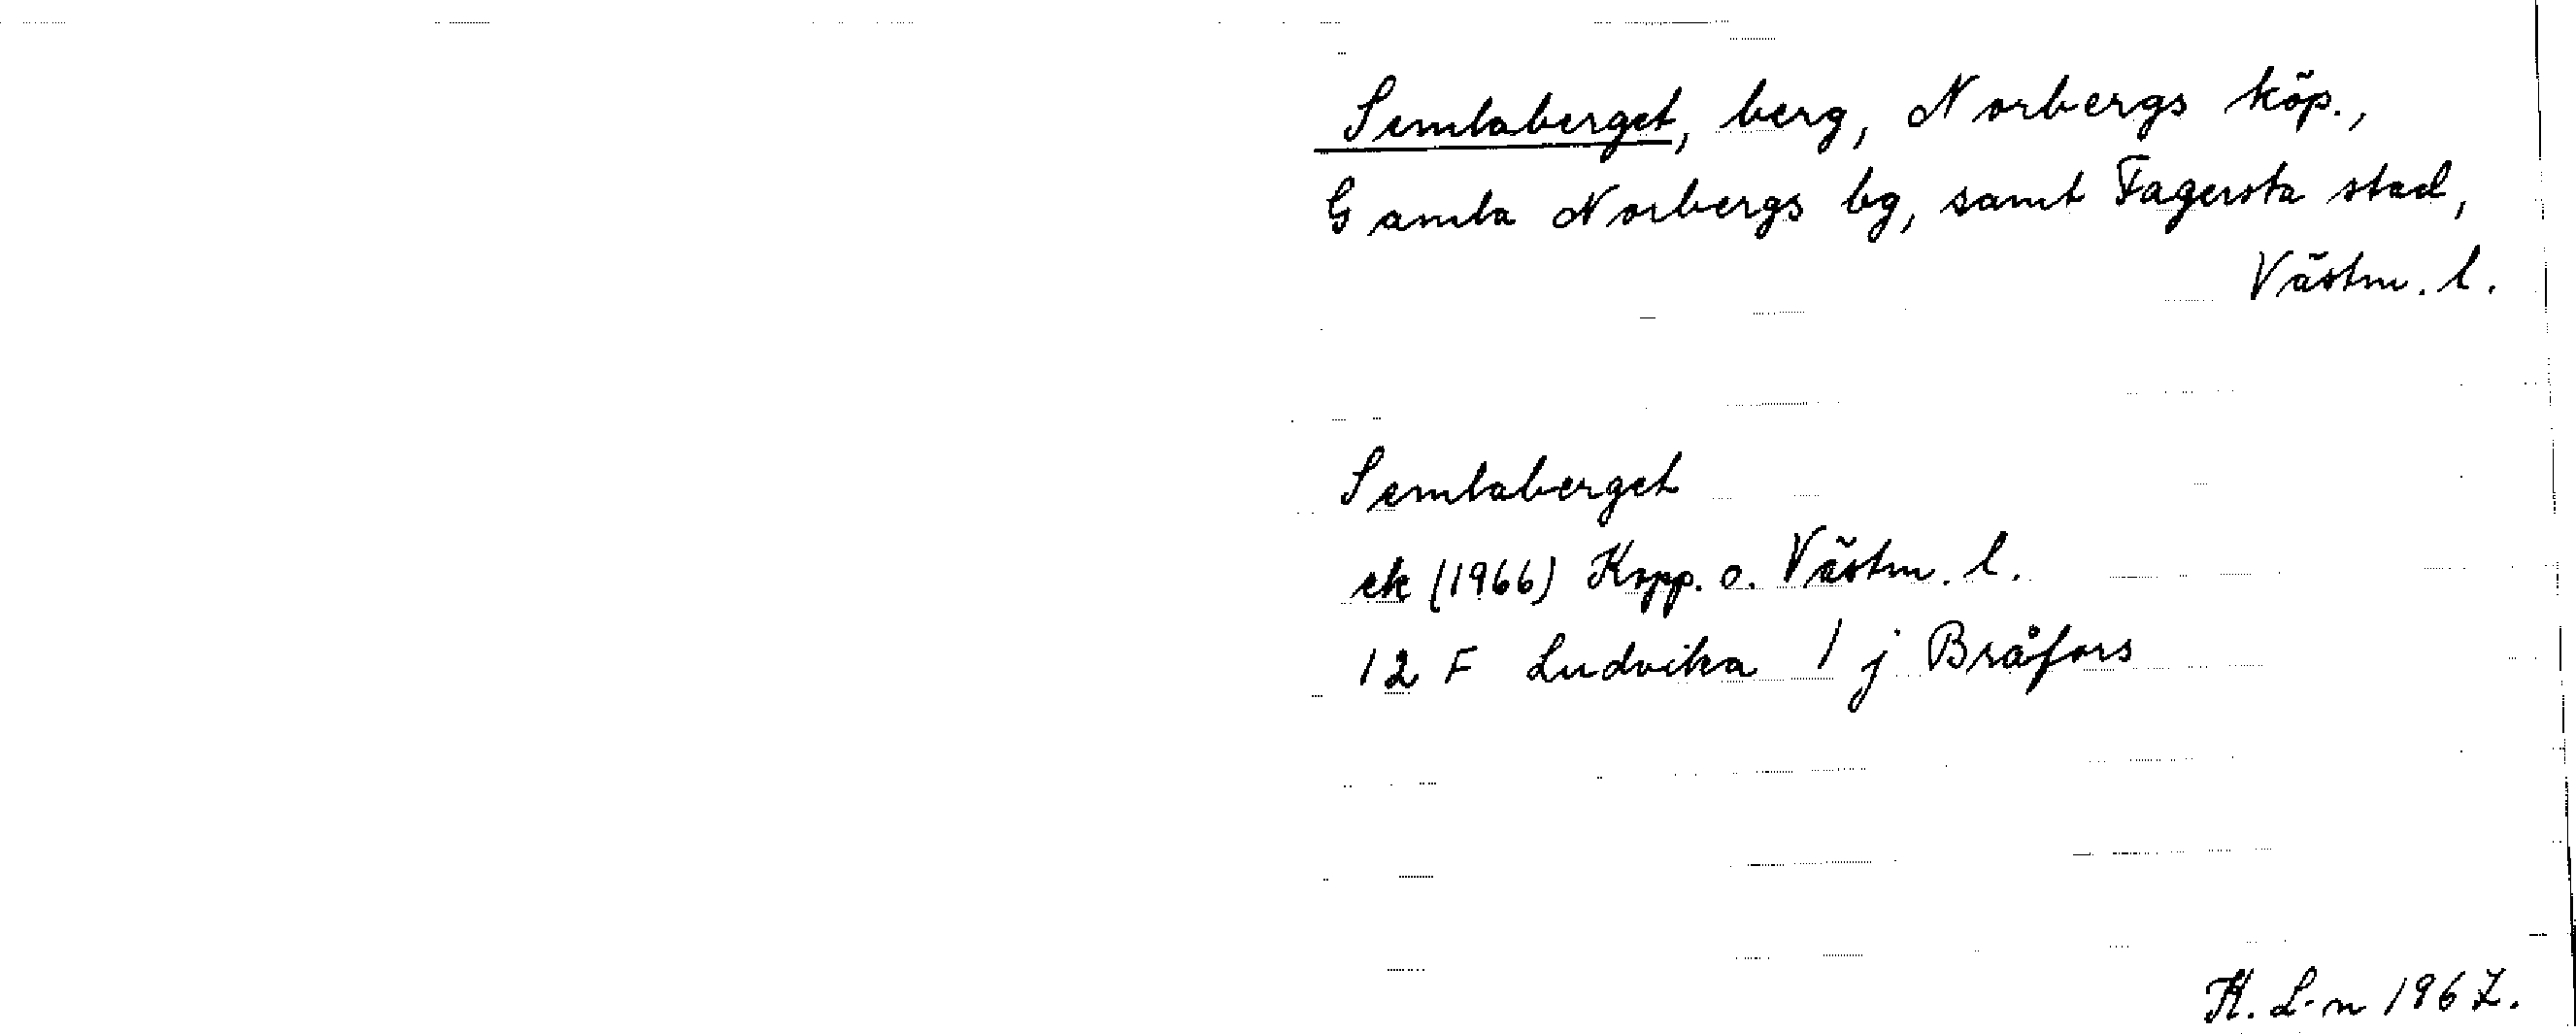 Semlaberget, berg, Norbergs köp.,
Gamla Norbergs bg, samt Fagersta stad,
Västm. l.
Semlaberget
ek (1966) Kopp. o. Västm. l.
12 F Ludvika 1 j Bråfors
K. L-n 1967.